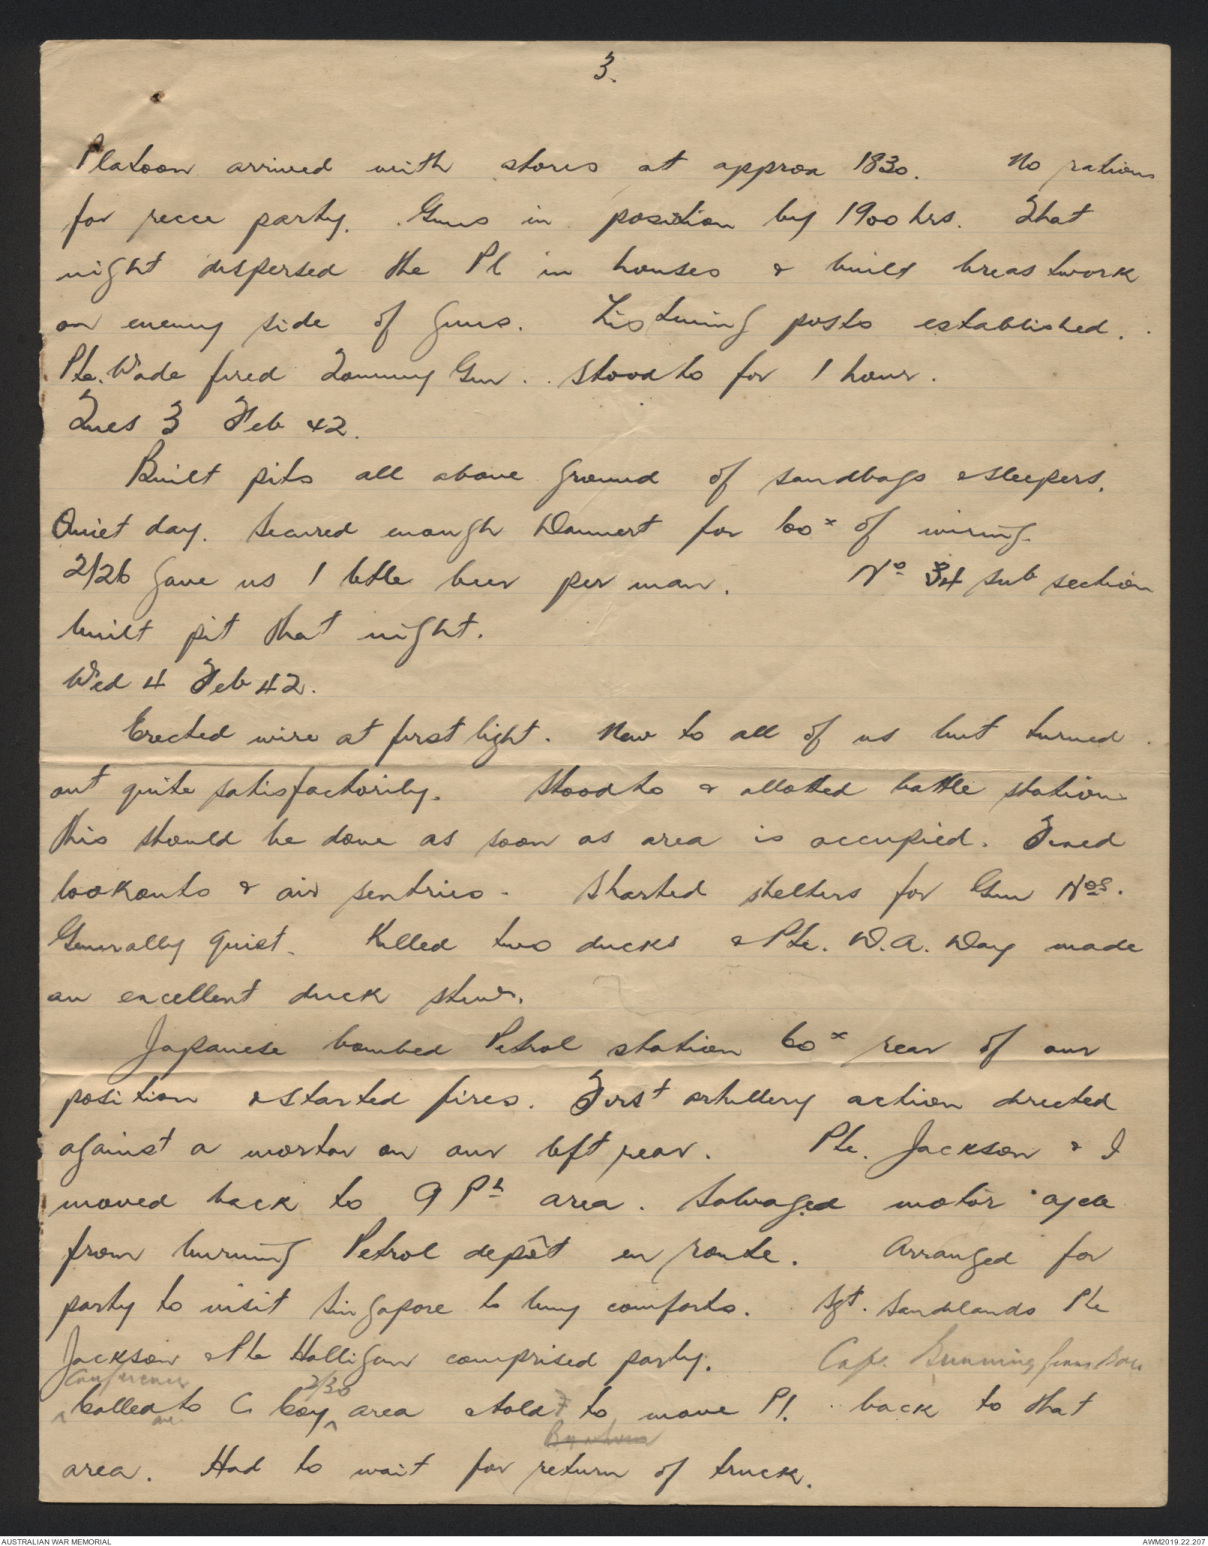 3.
Platoon arrived with stores at approx 1830. No rations
for recce party. Guns in position by 1900 hrs. That
night dispersed the Pl in houses & built breastwork
on enemy side of guns. Listening posts established.
Pte. Wade fired Tommy Gun. Stood to for 1 hour.
Tues 3 Feb 42.
Built pits all above ground of sandbags & sleepers.
Quiet day. Secured enough Dannert for 60ˣ of wiring.
2/26 gave us 1 bttle beer per man. Nº 34 sub section
built pit that night.
Wed 4 Feb 42.
Erected wire at first light. New to all of us but turned
out quite satisfactorily. Stood to & allotted battle station
this should be done as soon as area is occupied. Fixed
lookouts & air sentries. Started shelters for Gun Nos.
Generally quiet. Killed two ducks & Pte. W.A. Day made
an excellent duck stew.
Japanese bombed Petrol station 60ˣ rear of our
position & started fires. First artillery action directed
against a mortar on our left rear. Pte. Jackson & I
moved back to 9 Pl area. Salvaged motor cycle
from burning Petrol depôt en route. Arranged for
party to visit Singapore to buy comforts. Sgt. Sandilands Pte
Jackson & Pte Halligan comprised party. Capt. Gunning
Conference 2/30
called to C Coy area & told to move Pl. back to that
area. Had to wait for return of truck.
AUSTRALIAN WAR MEMORIAL
AWM2019.22.207